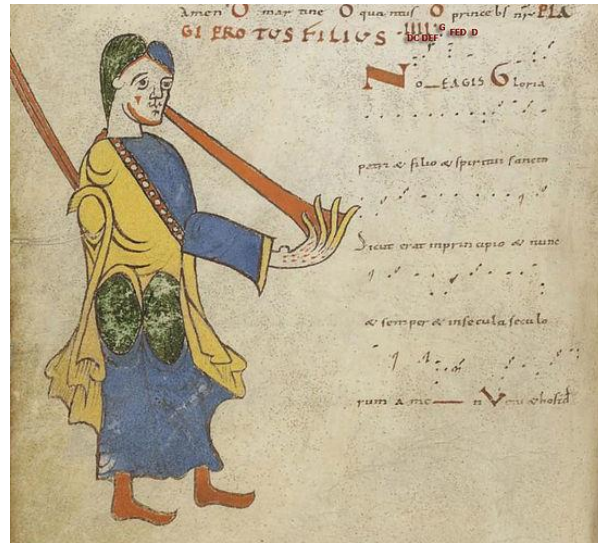 amen O mar tine O quantus O princebs nr PLA
GI PROTUS FILIUS DC DEF G FED D
No—EAGIS Gloria
patri & filio & spiritui sancto
Sicut erat inprincipio & nunc
& semper & insecula seculo
rum ame — n